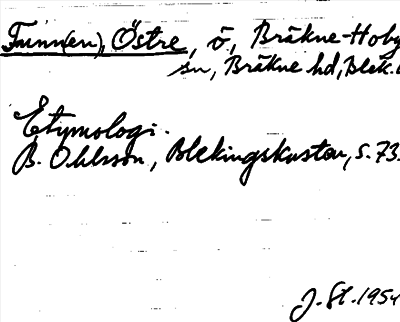 Funn(en), Östre, ö, Bräkne-Hoby
sn, Bräkne hd, Blek.
Etymologi.
B. Ohlsson, Blekingskusten, s. 73.
J. St. 1954